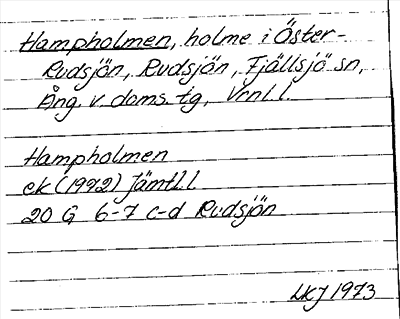 Hampholmen, holme i Öster-
Rudsjön, Rudsjön, Fjällsjö sn,
Ång. v. doms. tg, Vrnl. l.
Hampholmen
ek (1992) Jämtl. l
20 G 6-7 c-d Rudsjön
LKJ 1973